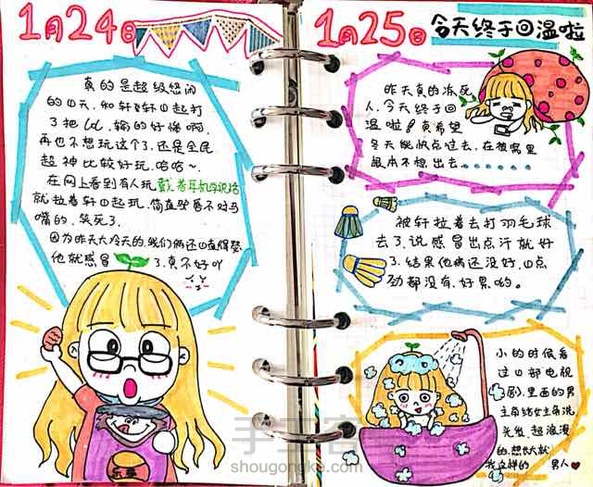 1月24日
真的是超级悠闲
的一天,和轩轩一起打
了把lol,输的好惨啊,
再也不想玩这个了,还是全民
超神比较好玩,哈哈~
在网上看到有人玩戴着耳机学说话
就拉着轩一起玩,简直驴唇不对马
嘴的,笑死了.
因为昨天大冷天的,我们俩还一直得瑟
他就感冒了,真不好吖
1月25日
今天终于回温啦
昨天真的冻死
人,今天终于回
温啦!真希望
冬天能快点过去,在被窝里
根本不想出去........
被轩拉着去打羽毛球
去了,说感冒出点汗就好
了.结果他病还没好,一点
劲都没有,好累哟。
小的时候看
过一部电视
剧,里面的男
主角给女主角洗
头发,超浪漫
的,想长大就
找这样的 男人♥
手工客
shougongke.com